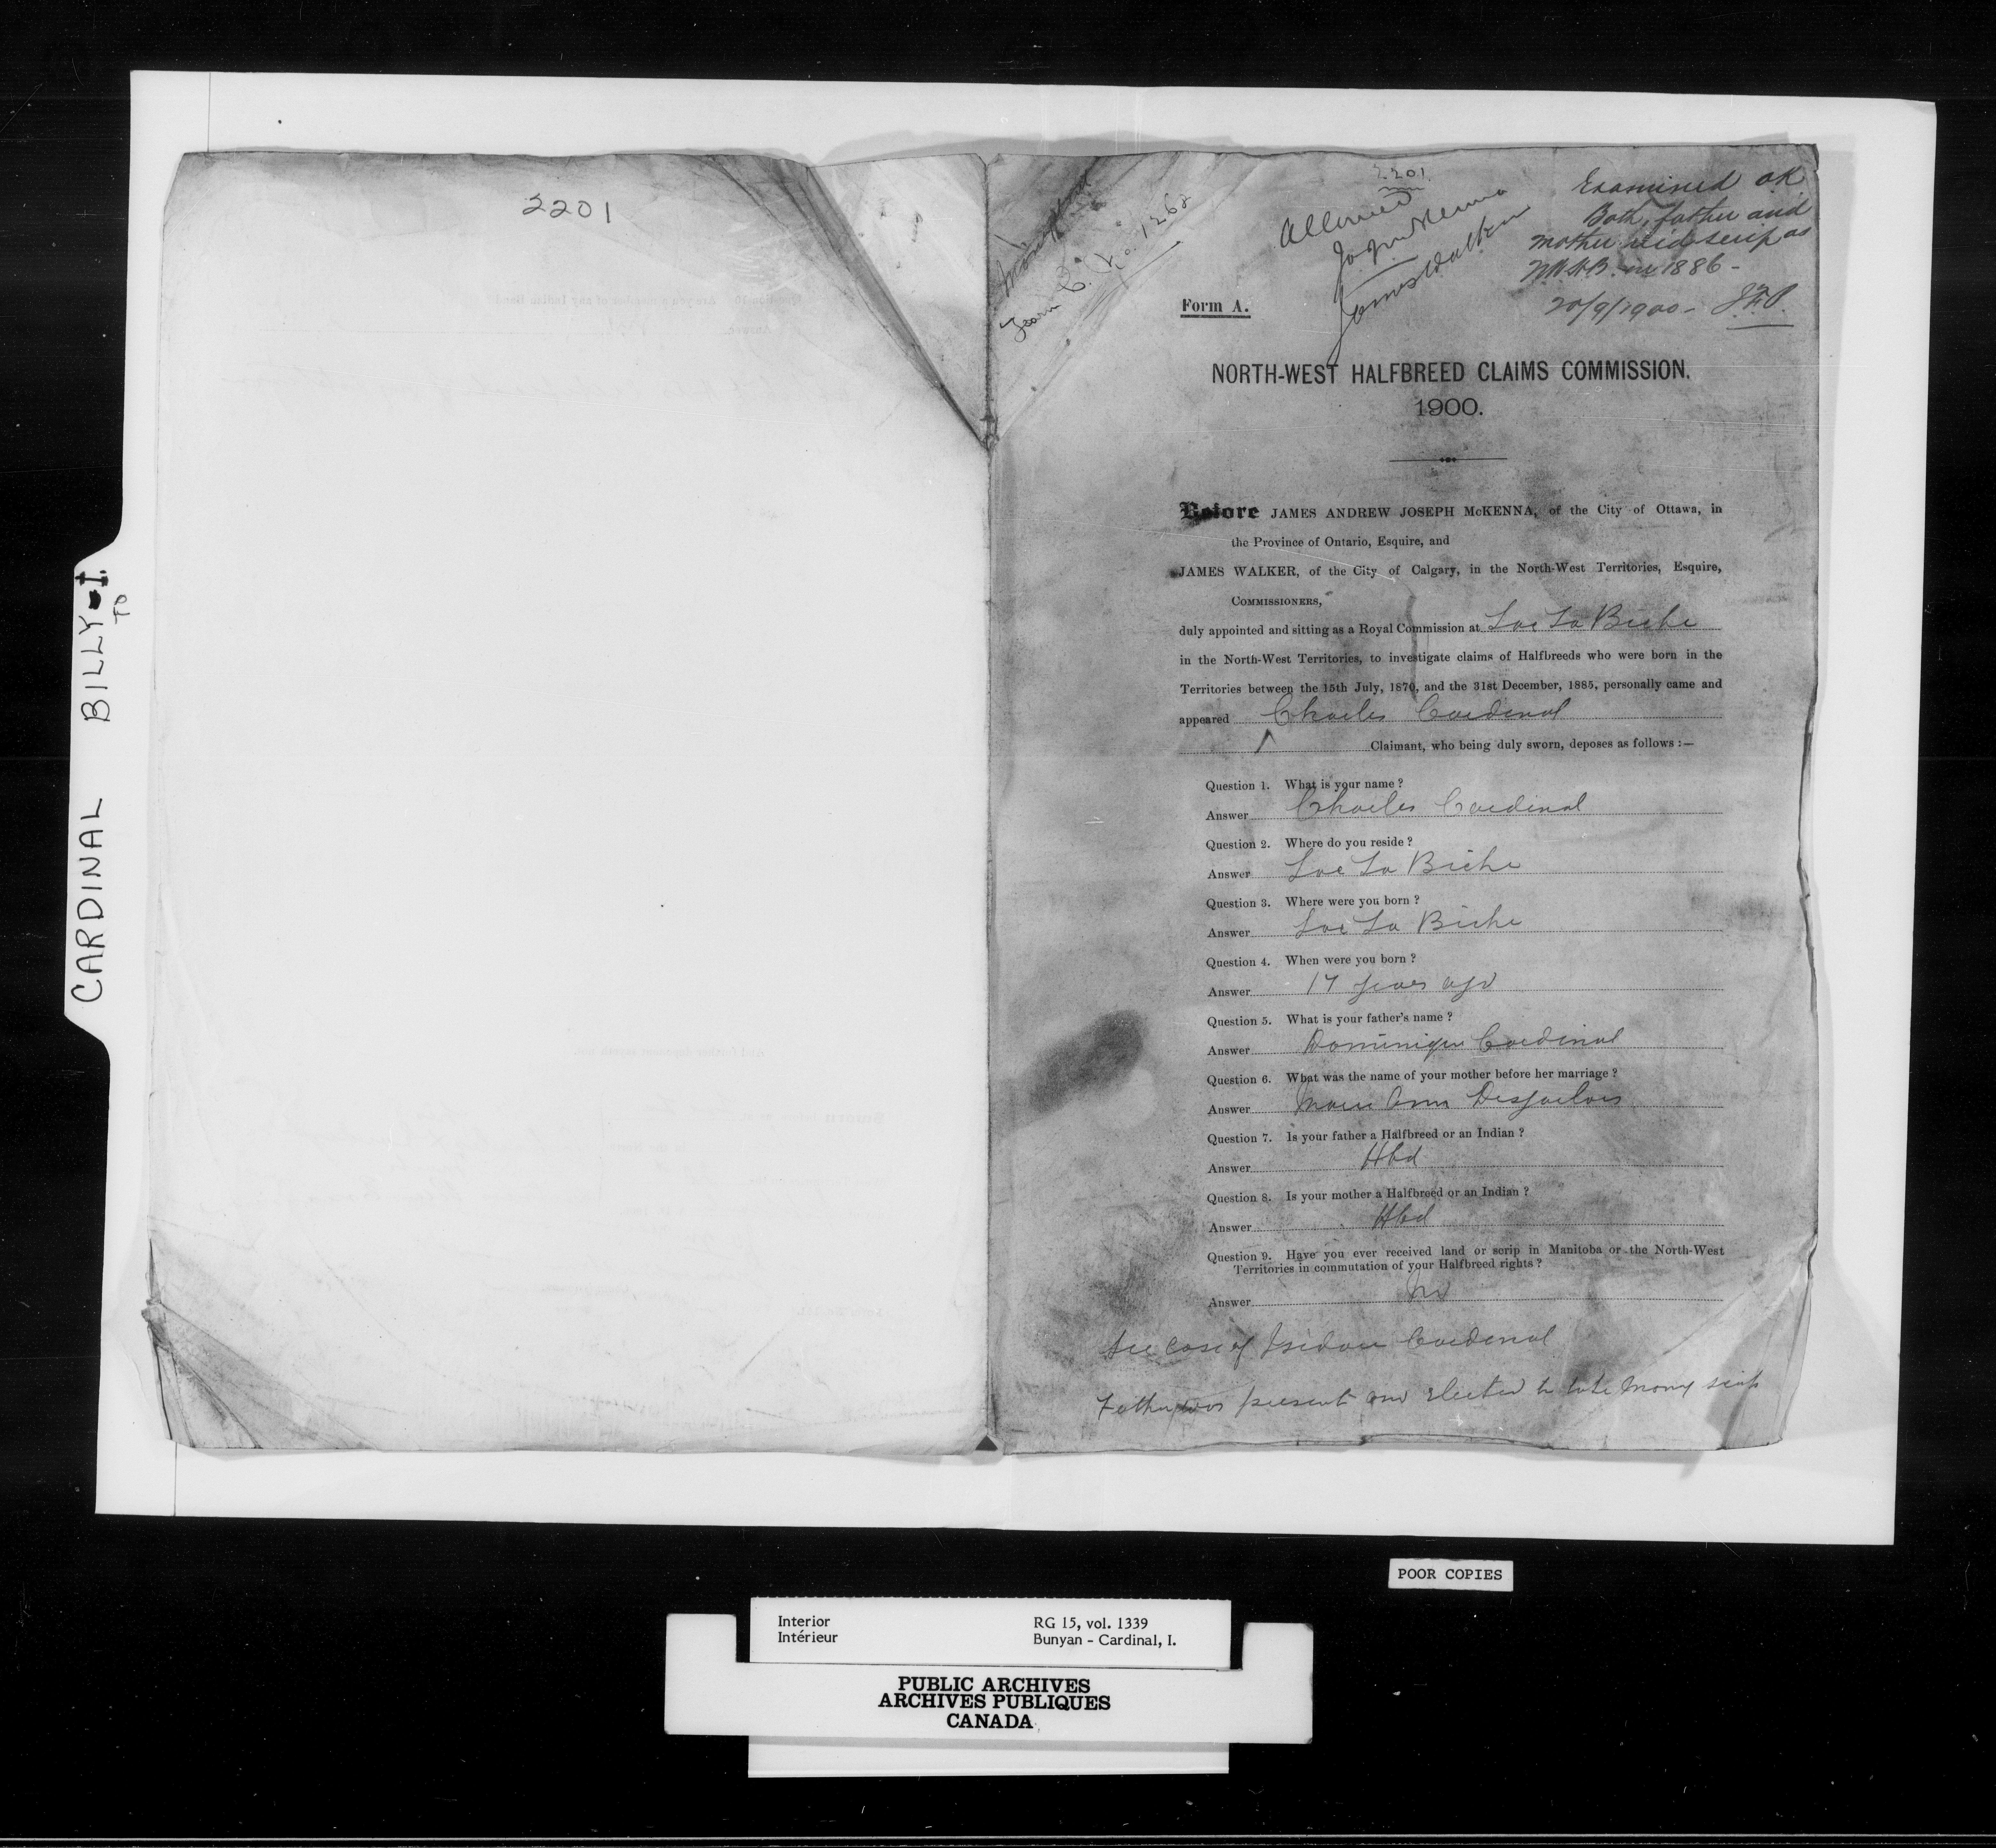 CARDINAL BILLY-I.
TO
2201
Form C. No. 1262
2201
Allowed
J.A.J. McKenna
James Walker
Examined O.K.
Both father and
mother did scrip as
N.W.H.B. in 1886-
20/9/1900- J.F.P.
Form A.
NORTH-WEST HALFBREED CLAIMS COMMISSION.
1900.
Before JAMES ANDREW JOSEPH McKENNA, of the City of Ottawa, in
the Province of Ontario, Esquire, and
JAMES WALKER, of the City of Calgary, in the North-West Territories, Esquire,
COMMISSIONERS,
duly appointed and sitting as a Royal Commission at Lac La Biche
in the North-West Territories, to investigate claims of Halfbreeds who were born in the
Territories between the 15th July, 1870, and the 31st December, 1885, personally came and
appeared Charles Cardinal
Claimant, who being duly sworn, deposes as follows :—
Question 1. What is your name ?
Answer Charles Cardinal
Question 2. Where do you reside ?
Answer Lac La Biche
Question 3. Where were you born ?
Answer Lac La Biche
Question 4. When were you born ?
Answer 17 years ago
Question 5. What is your father's name ?
Answer Dominique Cardinal
Question 6. What was the name of your mother before her marriage ?
Answer Marie Ann Desjarlais
Question 7. Is your father a Halfbreed or an Indian ?
Answer Hbd
Question 8. Is your mother a Halfbreed or an Indian ?
Answer Hbd
Question 9. Have you ever received land or scrip in Manitoba or the North-West
Territories in commutation of your Halfbreed rights ?
Answer No
See Case of Isidore Cardinal
Father was present and elected to take Money scrip
POOR COPIES
Interior
Intérieur
RG 15, vol. 1339
Bunyan - Cardinal, I.
PUBLIC ARCHIVES
ARCHIVES PUBLIQUES
CANADA